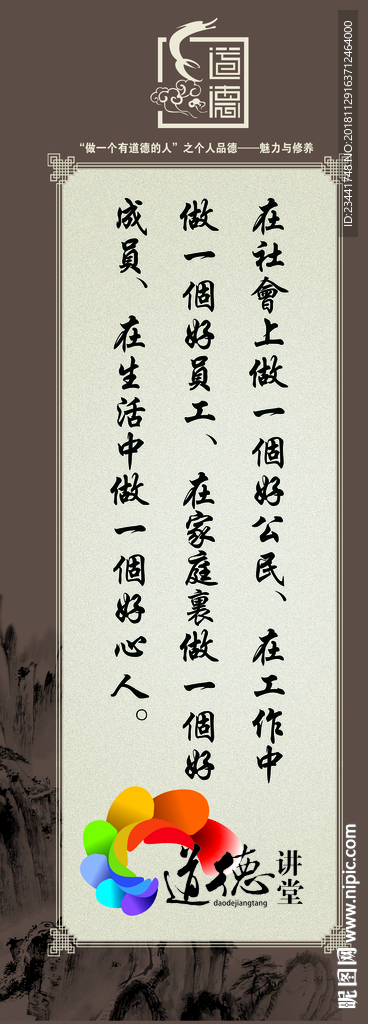 道德
“做一个有道德的人”之个人品德——魅力与修养
在社會上做一個好公民、在工作中
做一個好員工、在家庭裏做一個好
成員、在生活中做一個好心人。
道德
讲堂
daodejiangtang
ID:23441748 NO:20181129163712464000
昵图网 www.nipic.com